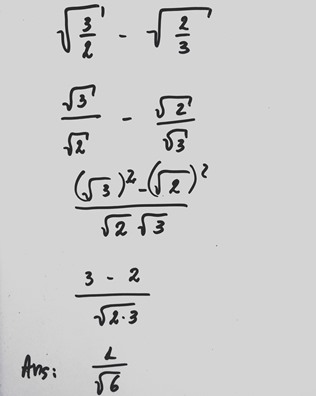 √(3/2) - √(2/3)
√3/√2 - √2/√3
((√3)² - (√2)²)/(√2 √3)
(3 - 2)/√(2·3)
Ans: 1/√6